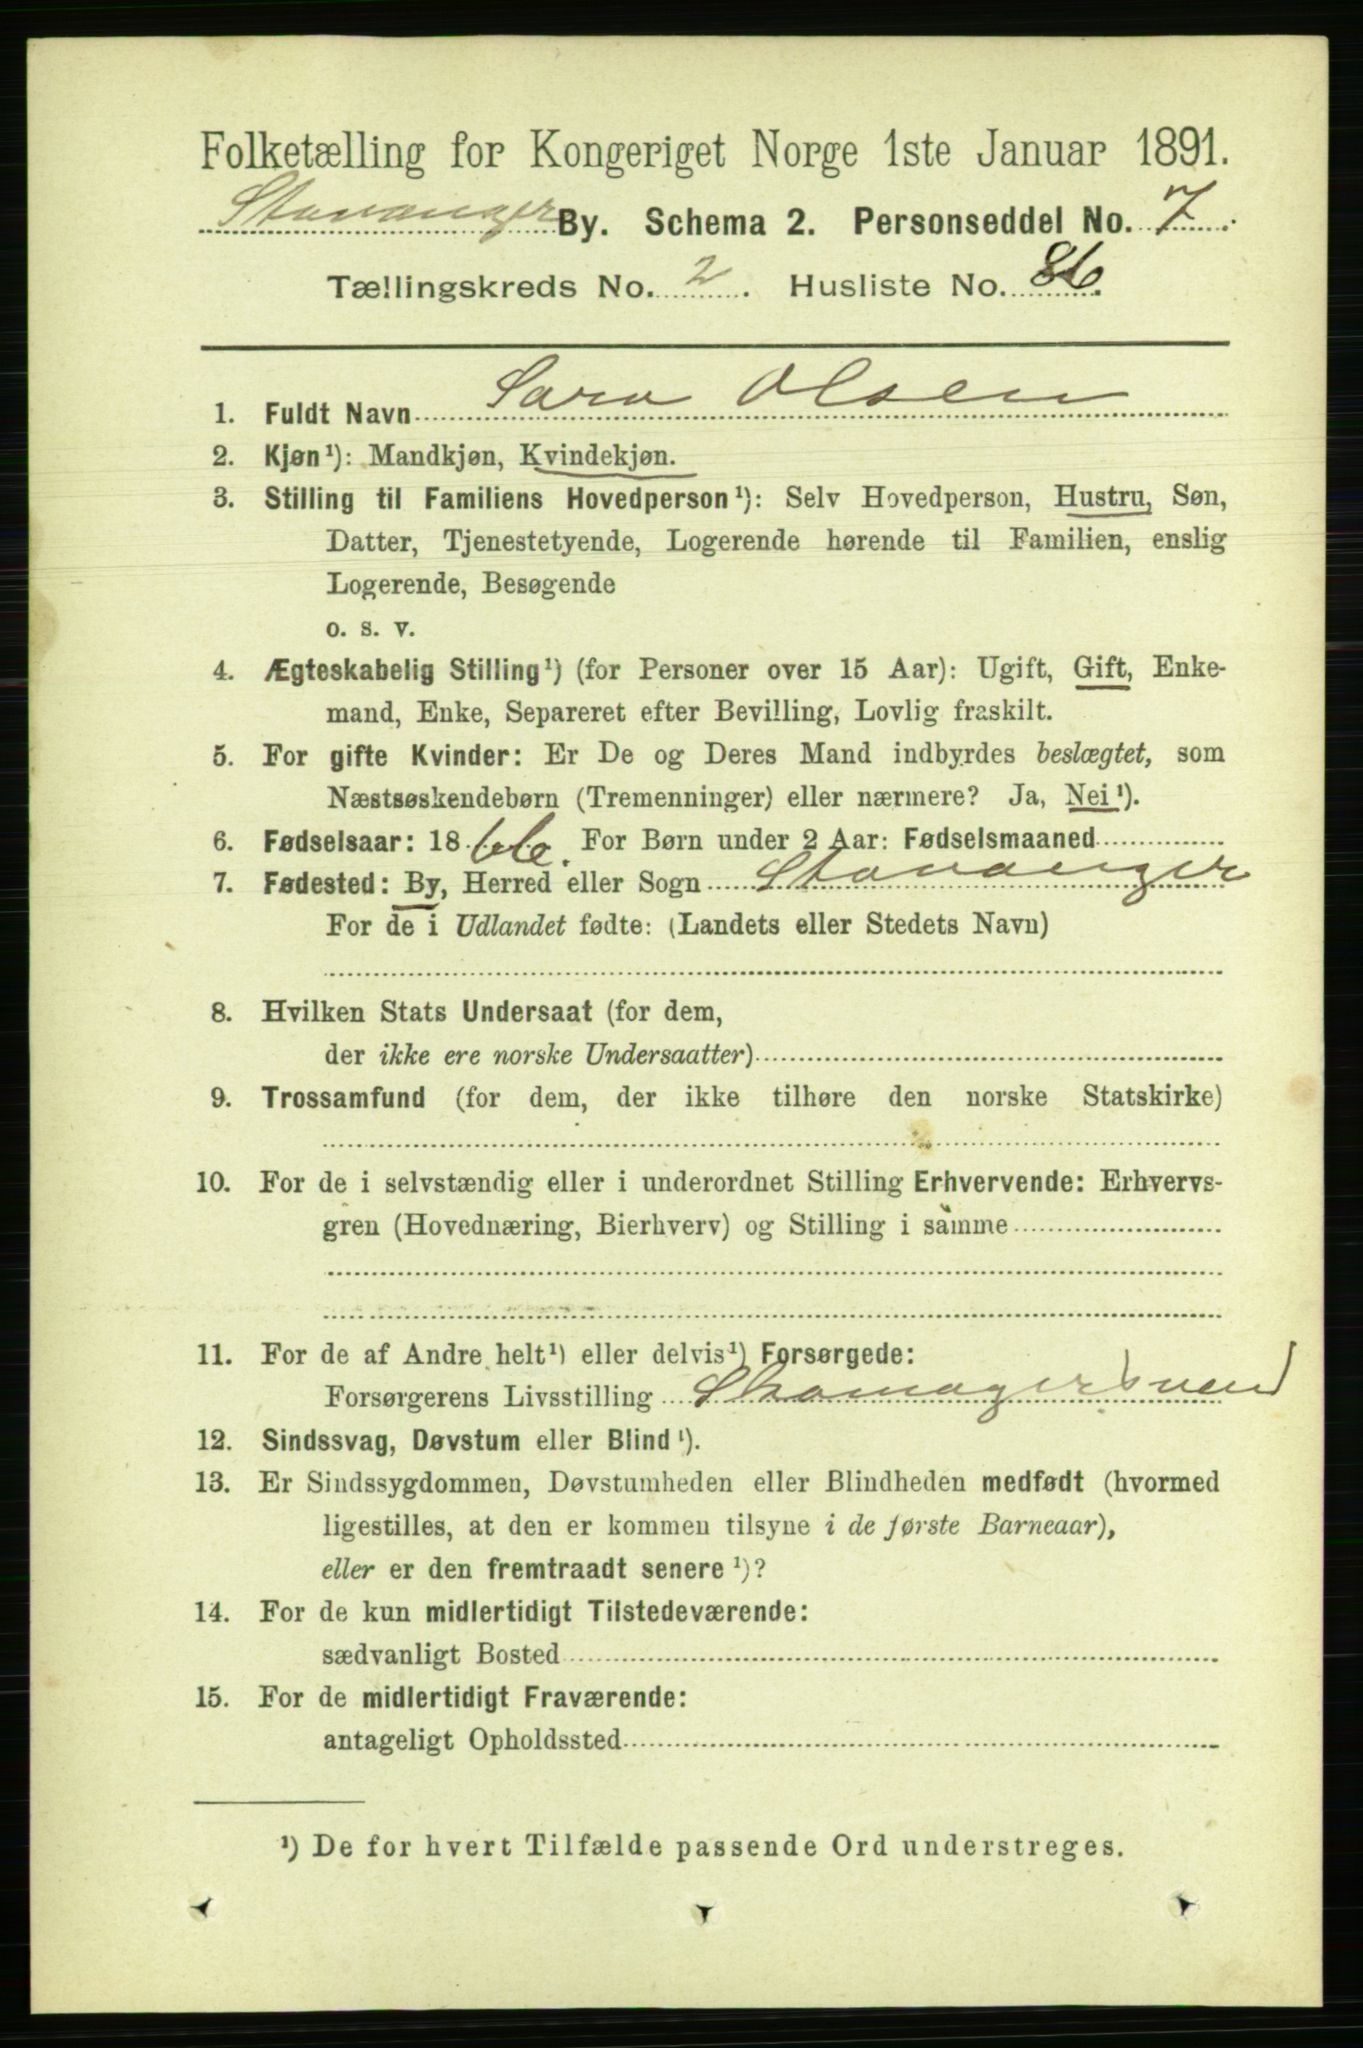 Folketælling for Kongeriget Norge 1ste Januar 1891.
Stavanger By. Schema 2. Personseddel No. 7.
Tællingskreds No. 2. Husliste No. 86.
1. Fuldt Navn Sara Olsen
2. Kjøn¹): Mandkjøn, Kvindekjøn.
3. Stilling til Familiens Hovedperson¹): Selv Hovedperson, Hustru, Søn,
Datter, Tjenestetyende, Logerende hørende til Familien, enslig
Logerende, Besøgende
o. s. v.
4. Ægteskabelig Stilling¹) (for Personer over 15 Aar): Ugift, Gift, Enke-
mand, Enke, Separeret efter Bevilling, Lovlig fraskilt.
5. For gifte Kvinder: Er De og Deres Mand indbyrdes beslægtet, som
Næstsøskendebørn (Tremenninger) eller nærmere? Ja, Nei¹).
6. Fødselsaar: 1866. For Børn under 2 Aar: Fødselsmaaned
7. Fødested: By, Herred eller Sogn Stavanger
For de i Udlandet fødte: (Landets eller Stedets Navn)
8. Hvilken Stats Undersaat (for dem,
der ikke ere norske Undersaatter)
9. Trossamfund (for dem, der ikke tilhøre den norske Statskirke)
10. For de i selvstændig eller i underordnet Stilling Erhvervende: Erhvervs-
gren (Hovednæring, Bierhverv) og Stilling i samme
11. For de af Andre helt¹) eller delvis¹) Forsørgede:
Forsørgerens Livsstilling Skomagersvend
12. Sindssvag, Døvstum eller Blind¹).
13. Er Sindssygdommen, Døvstumheden eller Blindheden medfødt (hvormed
ligestilles, at den er kommen tilsyne i de første Barneaar),
eller er den fremtraadt senere¹)?
14. For de kun midlertidigt Tilstedeværende:
sædvanligt Bosted
15. For de midlertidigt Fraværende:
antageligt Opholdssted
¹) De for hvert Tilfælde passende Ord understreges.